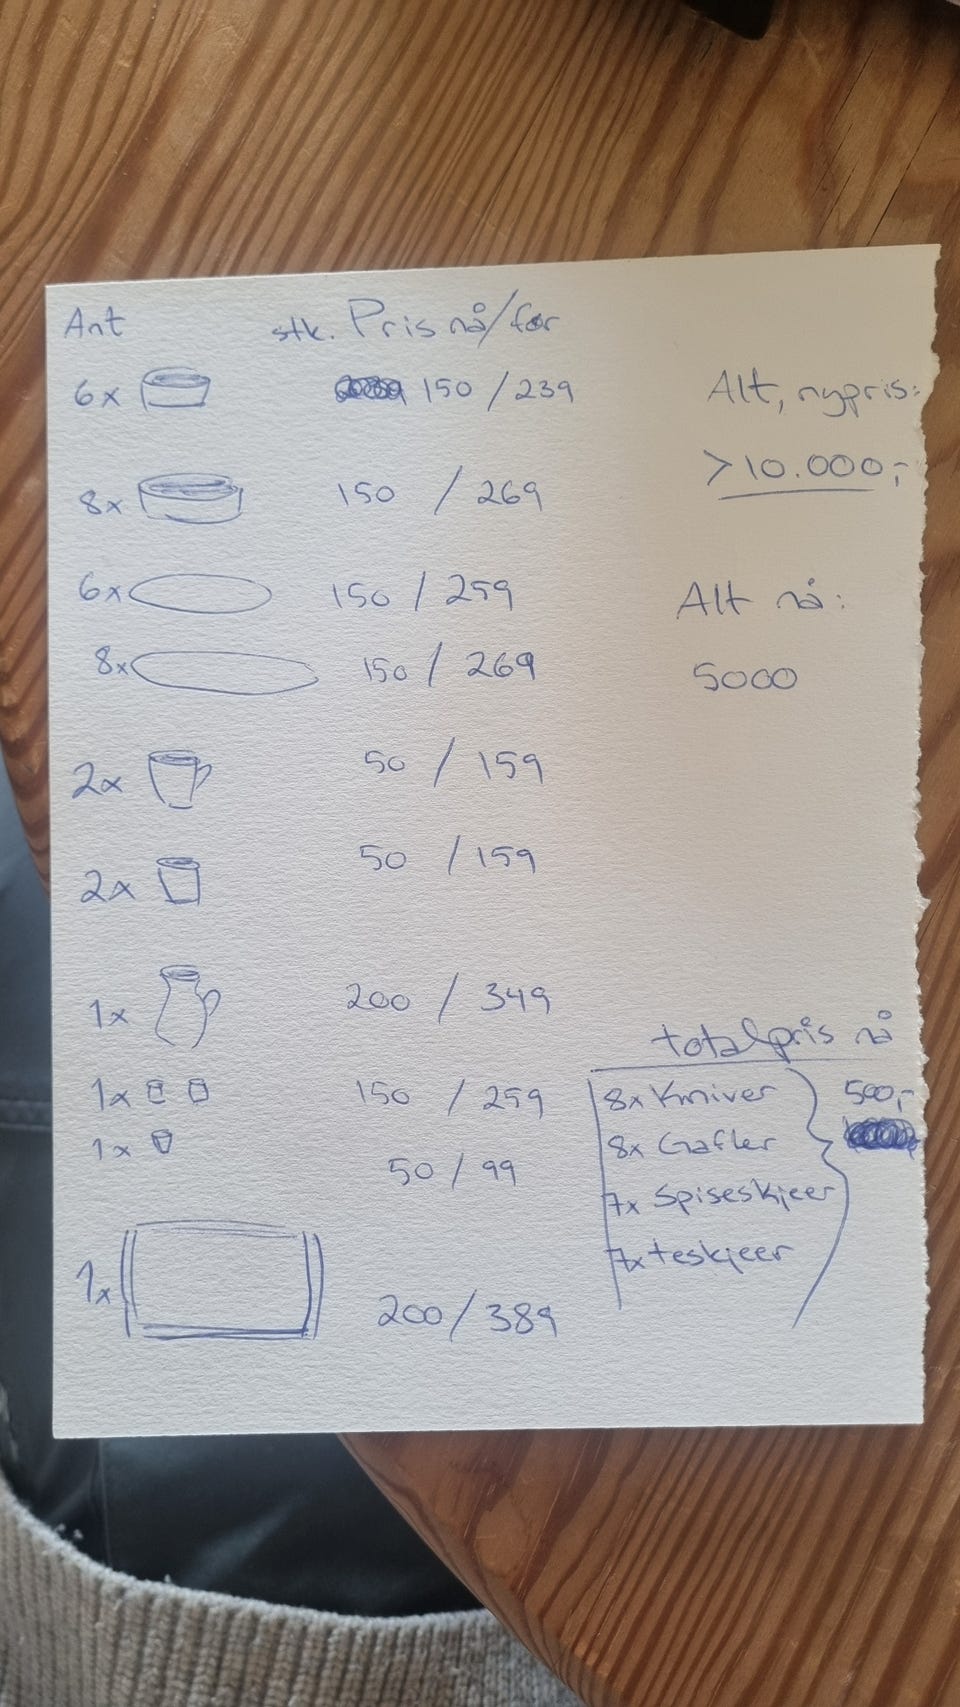 Ant stk. Pris nå/før
6x 150 / 239
8x 150 / 269
6x 150 / 259
8x 150 / 269
2x 50 / 159
2x 50 / 159
1x 200 / 349
1x 150 / 259
1x 50 / 99
1x 200 / 389
Alt, nypris:
>10.000,-
Alt nå:
5000
totalpris nå
8x Kniver 500,-
8x Gafler
7x Spiseskjeer
7x teskjeer